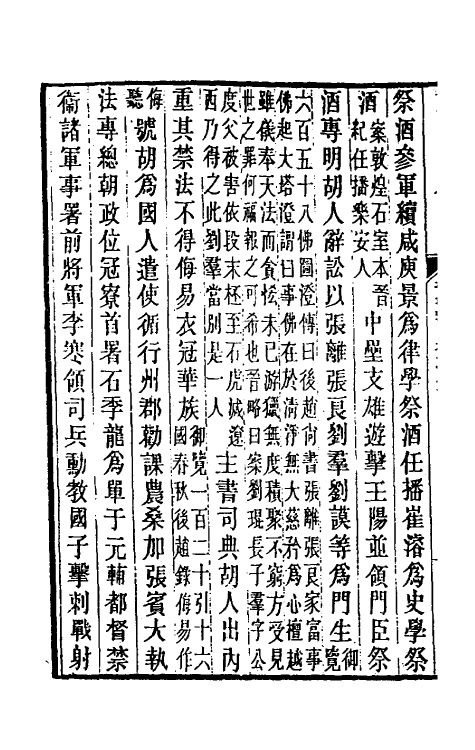 祭酒參軍續咸庾景爲律學祭酒任播崔濬爲史學祭
酒案敦煌石室本晉紀任播樂安人中壘支雄遊擊王陽並領門臣祭
酒專明胡人辭訟以張離張良劉羣劉謨等爲門生御覽
六百五十八佛圖澄傳曰後趙尚書張離張良家富事
佛起大塔澄謂曰事佛在於清淨無大慈矜爲心檀越
雖儀奉天法而貪悋未已游獵無度積聚不窮方受見
世之罪何福報之可希也晉略曰案劉琨長子羣字公
度父被害依段末柸至石虎滅遼西乃得之此劉羣當別是一人主書司典胡人出內
重其禁法不得侮易衣冠華族御覽一百二十引十六國春秋後趙錄侮易作
侮聽號胡爲國人遣使循行州郡勸課農桑加張賓大執
法專總朝政位冠寮首署石季龍爲單于元輔都督禁
衞諸軍事署前將軍李寒領司兵勳教國子擊刺戰射